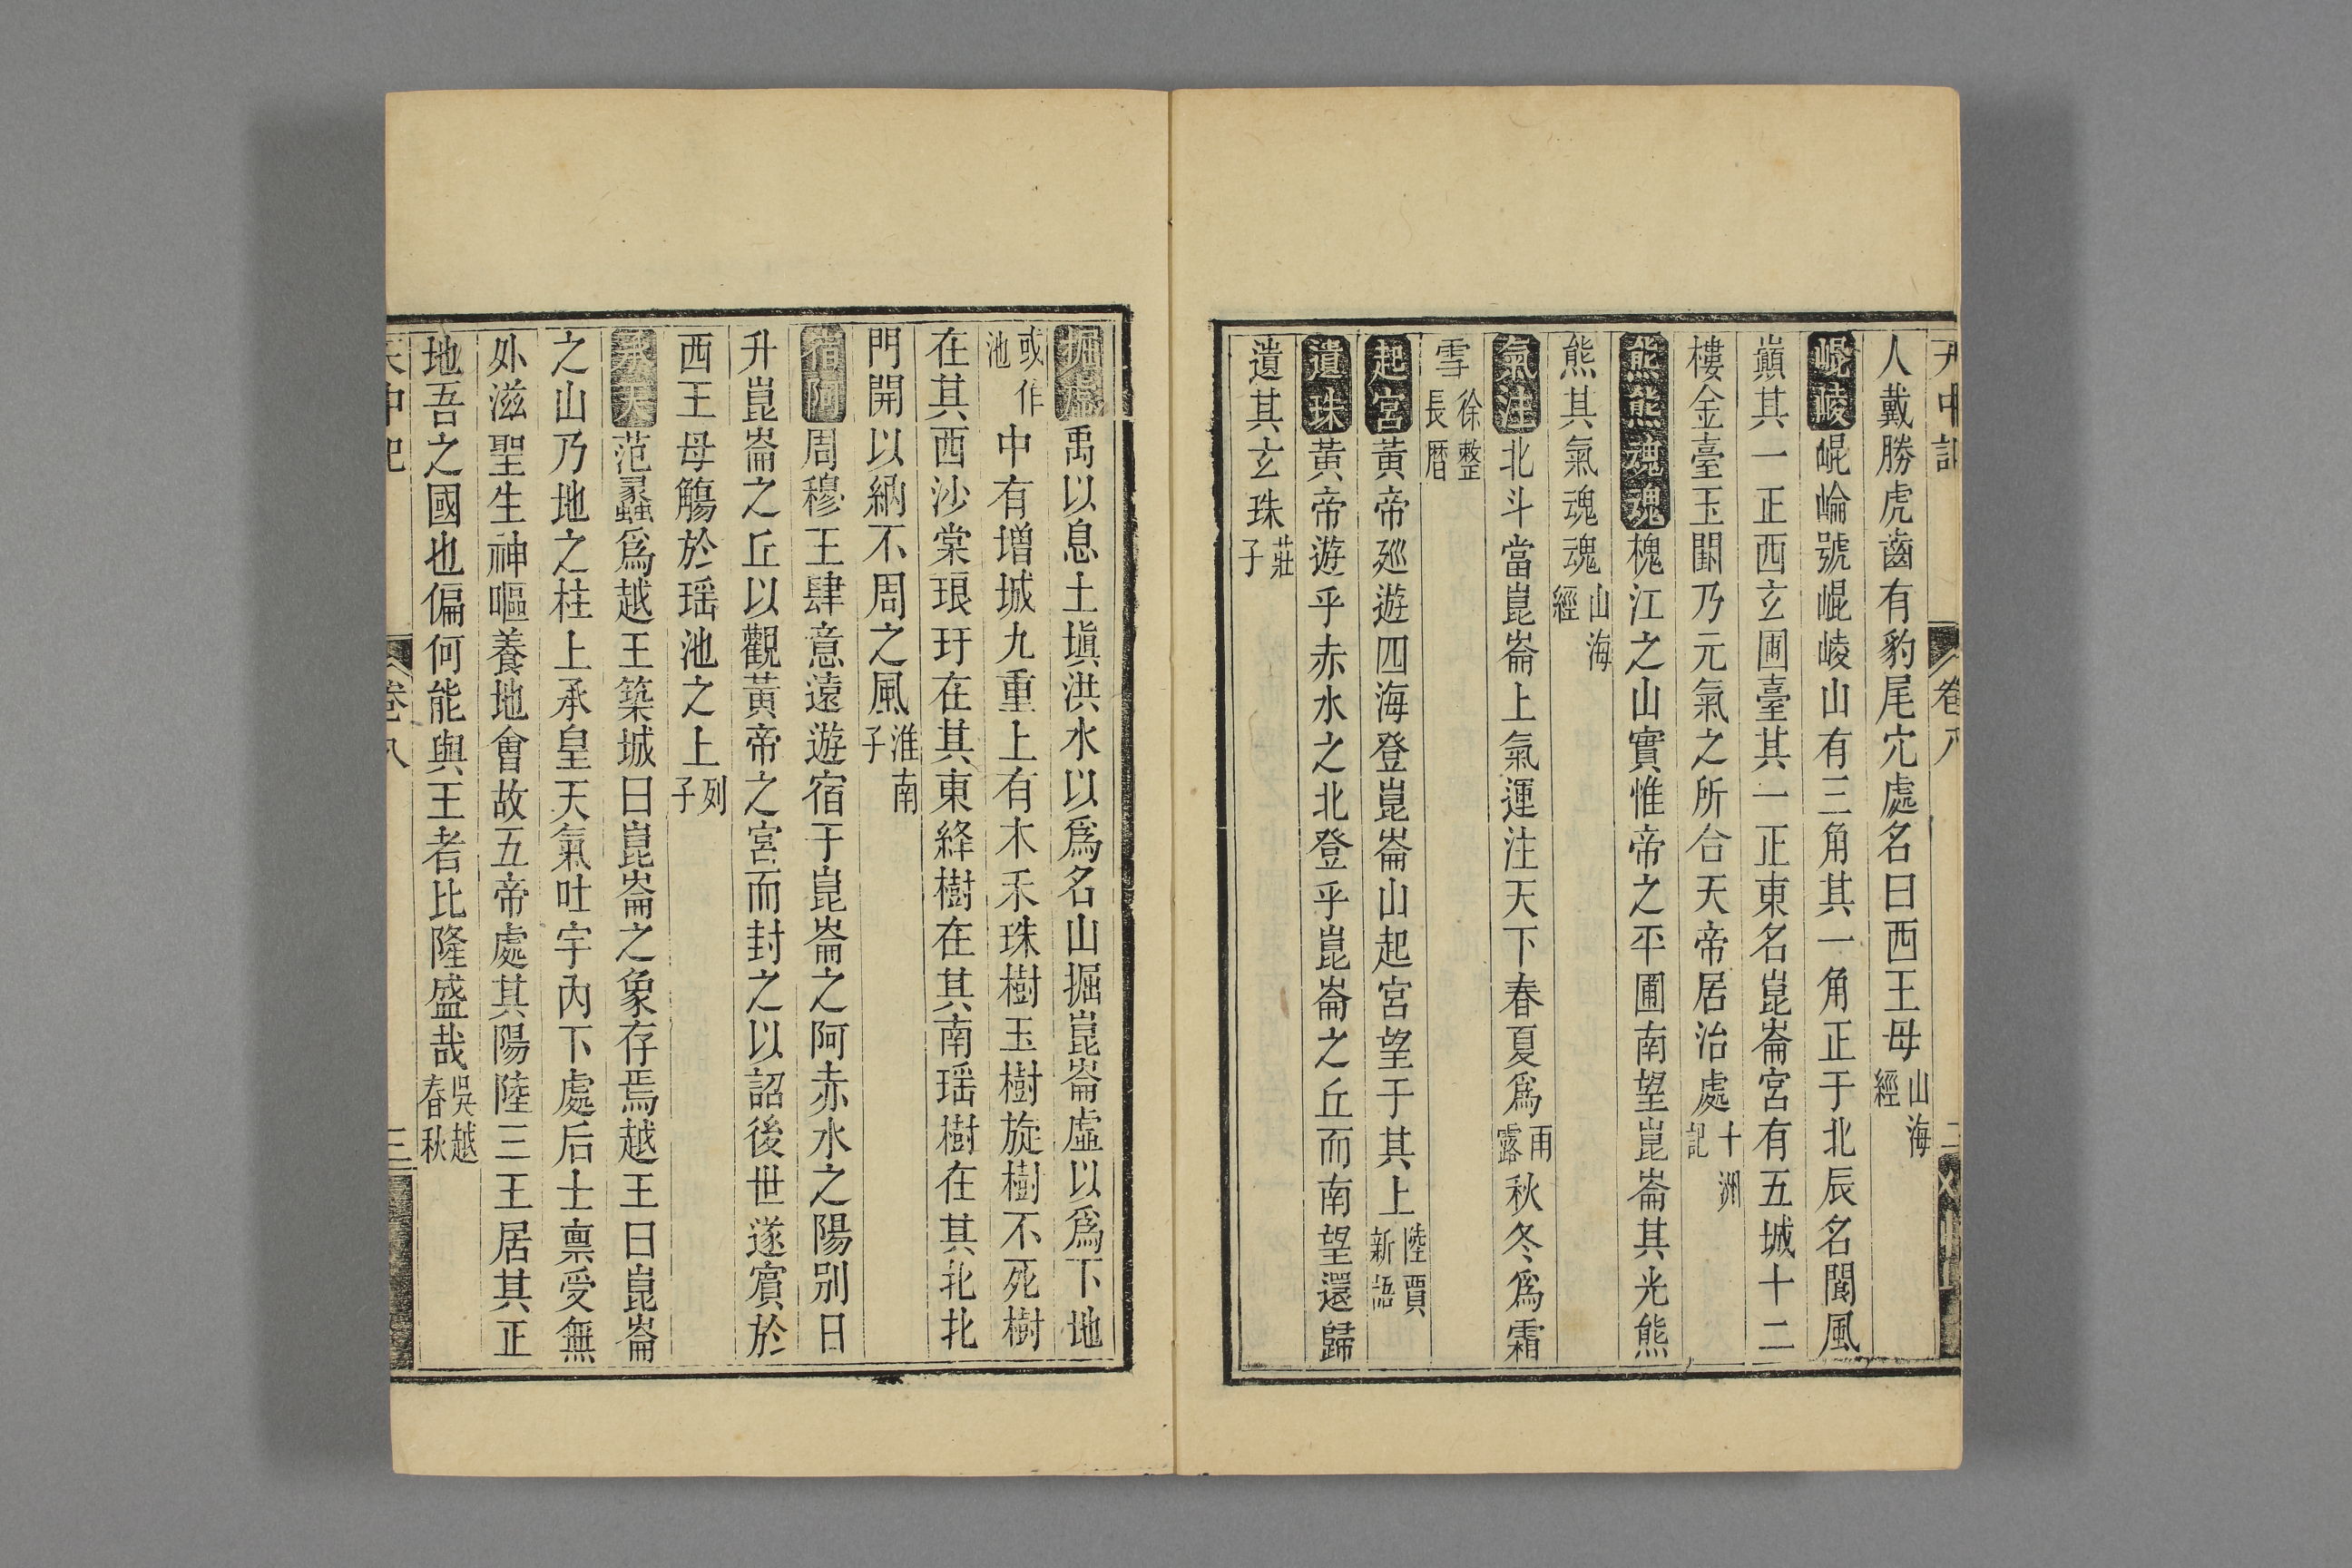 天中記 卷八 二
人戴勝虎齒有豹尾穴處名曰西王母山海經
崐崚崐崘號崐崚山有三角其一角正于北辰名閬風
巔其一正西玄圃臺其一正東名崑崙宮有五城十二
樓金臺玉闕乃元氣之所合天帝居治處十洲記
熊熊魂魂槐江之山實惟帝之平圃南望崑崙其光熊
熊其氣魂魂山海經
氣注北斗當崑崙上氣運注天下春夏爲雨露秋冬爲霜
雪徐整長曆
起宮黃帝廵遊四海登崑崙山起宮望于其上陸賈新語
遺珠黃帝遊乎赤水之北登乎崑崙之丘而南望還歸
遺其玄珠莊子
掘虛禹以息土塡洪水以爲名山掘崑崙虛以爲下地
或作池中有增城九重上有木禾珠樹玉樹旋樹不死樹
在其西沙棠琅玕在其東絳樹在其南瑶樹在其北北
門開以納不周之風淮南子
宿阿周穆王肆意遠遊宿于崑崙之阿赤水之陽别日
升崑崙之丘以觀黃帝之宮而封之以詔後世遂賓於
西王母觴於瑶池之上列子
承天范蠡爲越王築城曰崑崙之象存焉越王曰崑崙
之山乃地之柱上承皇天氣吐宇內下處后土禀受無
外滋聖生神嘔養地會故五帝處其陽陸三王居其正
地吾之國也偏何能與王者比隆盛哉吳越春秋
天中記 卷八 三